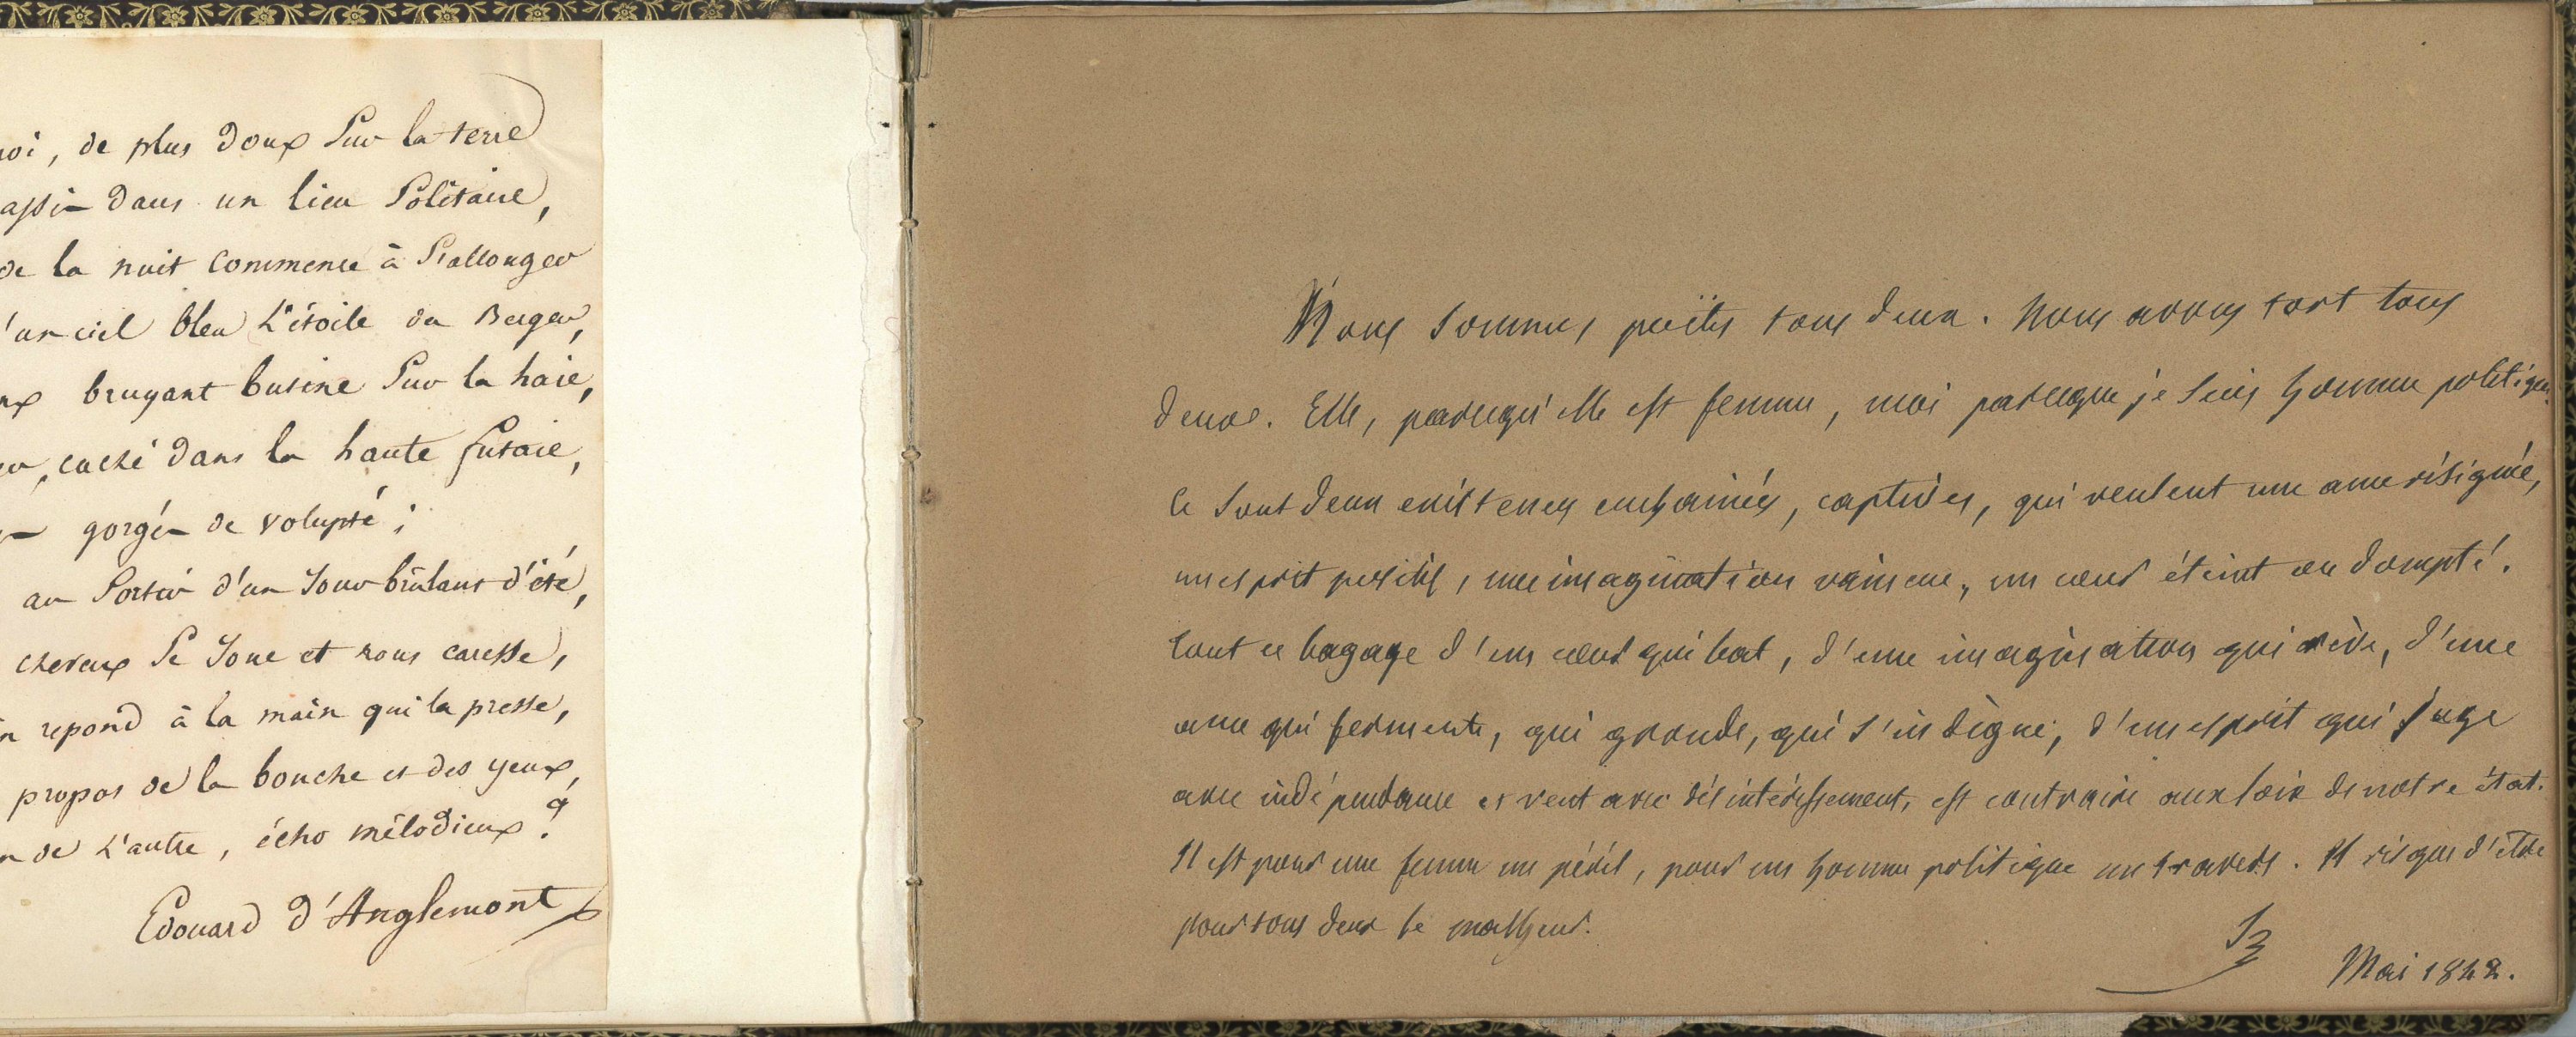 oi, de plus doux sur la terre
assis dans un lieu solitaire,
de la nuit commence à s'allonger
'un ciel bleu L'étoile du Berger,
bruyant butine sur la haie,
caché dans la haute futaie,
gorgés de volupté ;
au sortir d'un Jour brûlant d'été,
cheveux se Joue et nous caresse,
repond à la main qui la presse,
propos de la bouche et des yeux,
de L'autre, écho mélodieux ?
Edouard d'Anglemont
Nous sommes poëtes tous deux. Nous avons tort tous
deux. Elle, parcequ'elle est femme, moi parceque je suis homme politique.
Ce sont deux existences enchainées, captives, qui veulent une ame résignée,
un esprit positif, une imagination vaincue, un cœur éteint ou dompté.
tout ce bagage d'un cœur qui bat, d'une imagination qui rêve, d'une
ame qui fermente, qui gronde, qui s'indigne, d'un esprit qui juge
avec indépendance et veut avec désintéressement, est contraire aux loix de notre état.
Il est pour une femme un péril, pour un homme politique un travers. Il risque d'être
pour tous deux le malheur.
Mai 1842.